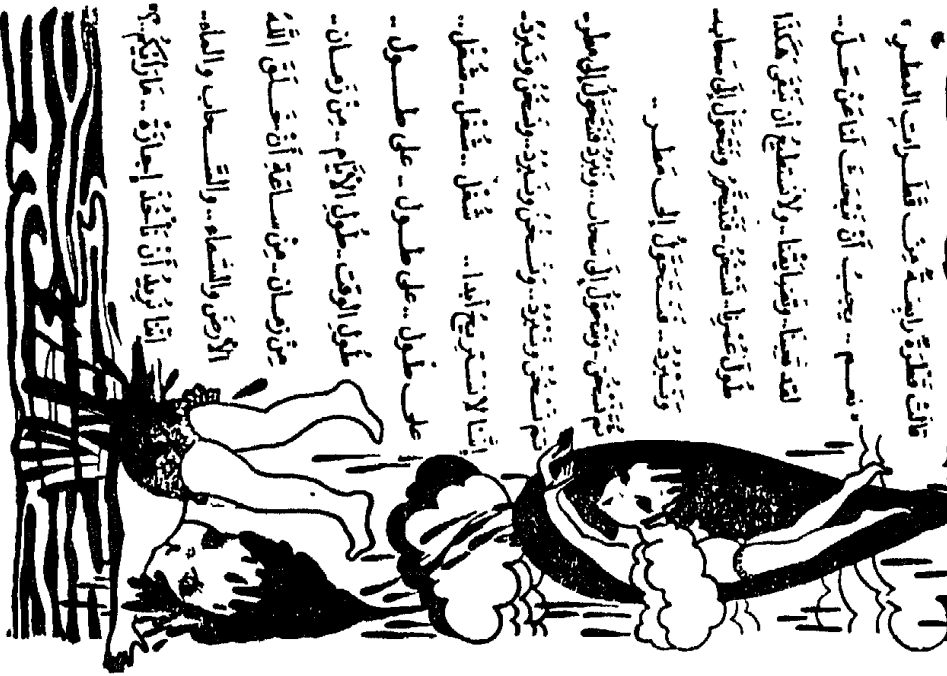 قَالَتْ قَطْرَةٌ رابِعَةٌ مِنْ قَطَراتِ المطرِ :
« نعم .. يجبُ أَنْ نَبْحَثَ لَنا عَنْ حَلّ ..
لقد تعبنا .. وتَضايَقْنا .. ولا نَستطيعُ أن نَبْقَى هَكَذَا
طُولَ عُمْرِنا .. نَسْخُنُ .. فَنَتَبَخَّرُ ونَتَحَوَّلُ إِلَى سَحابٍ ..
ونَبْرُدُ .. فنَتَحَوَّلُ إلى مَطَرٍ ..
ثُمَّ نَسْخُنُ .. ونتحوَّلُ إلى سَحاب .. ونَبْرُدُ فنتحَوَّلُ إلى مطر ..
ثم نَسْخُنُ ونَبْرُدُ .. ونَسْخُنُ ونَبْرُدُ .. ونَسْخُنُ ونَبْرُدُ ..
إنَّنا لا نَسْتَرِيحُ أبدا .. شُغْلٌ .. شُغْلٌ .. شُغْلٌ ..
على طُول .. على طُول .. على طُول ..
طُولَ الوقتِ .. طُولَ الأيَّامِ .. مِنْ زَمان ..
مِنْ زمان .. مِنْ ساعَةِ أَنْ خَلَقَ اللهُ
الأرضَ والسَّماء .. والسَّحاب والماء ..
إنَّنا نُرِيدُ أن نَأْخُذَ إجازَةً .. ما رَأْيُكُم .. ؟ »